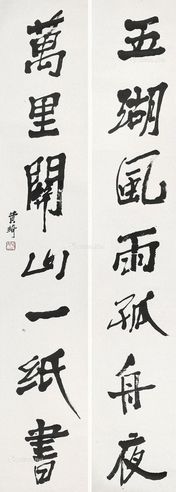 五湖風雨孤舟夜
萬里關山一紙書
黃琦